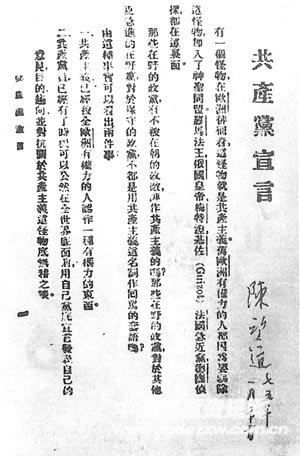 共產黨宣言
陳望道
七五年
有一個怪物在歐洲徘徊着這怪物就是共產主義。舊歐洲有權力的人都因爲要驅除
這怪物加入了神聖同盟。羅馬法王俄國皇帝梅特涅基佐(Guizot)法國急近黨德國偵
探都在這裏面。
那些在野的政黨有不被在朝的政敵誣作共產主義的嗎?那些在野的政黨對於其他
更急進的在野黨對於保守的政黨不都是用共產主義這名詞作回罵的套語嗎?
由這種事實可以看出兩件事:
一、共產主義已經被全歐洲有權力的人認作一種有權力的東西。
二、共產黨員已經有了時機可以公然在全世界底面前用自己黨底宣言發表自己的
意見目的趨向並對抗關於共產主義這怪物底無稽之談。
共產黨宣言
一